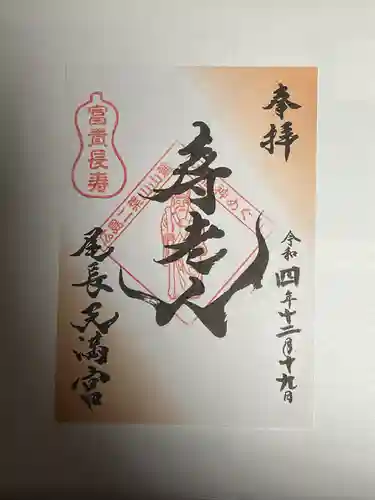 奉拝
令和四年十二月十九日
寿老人
富貴長寿
尾長天満宮